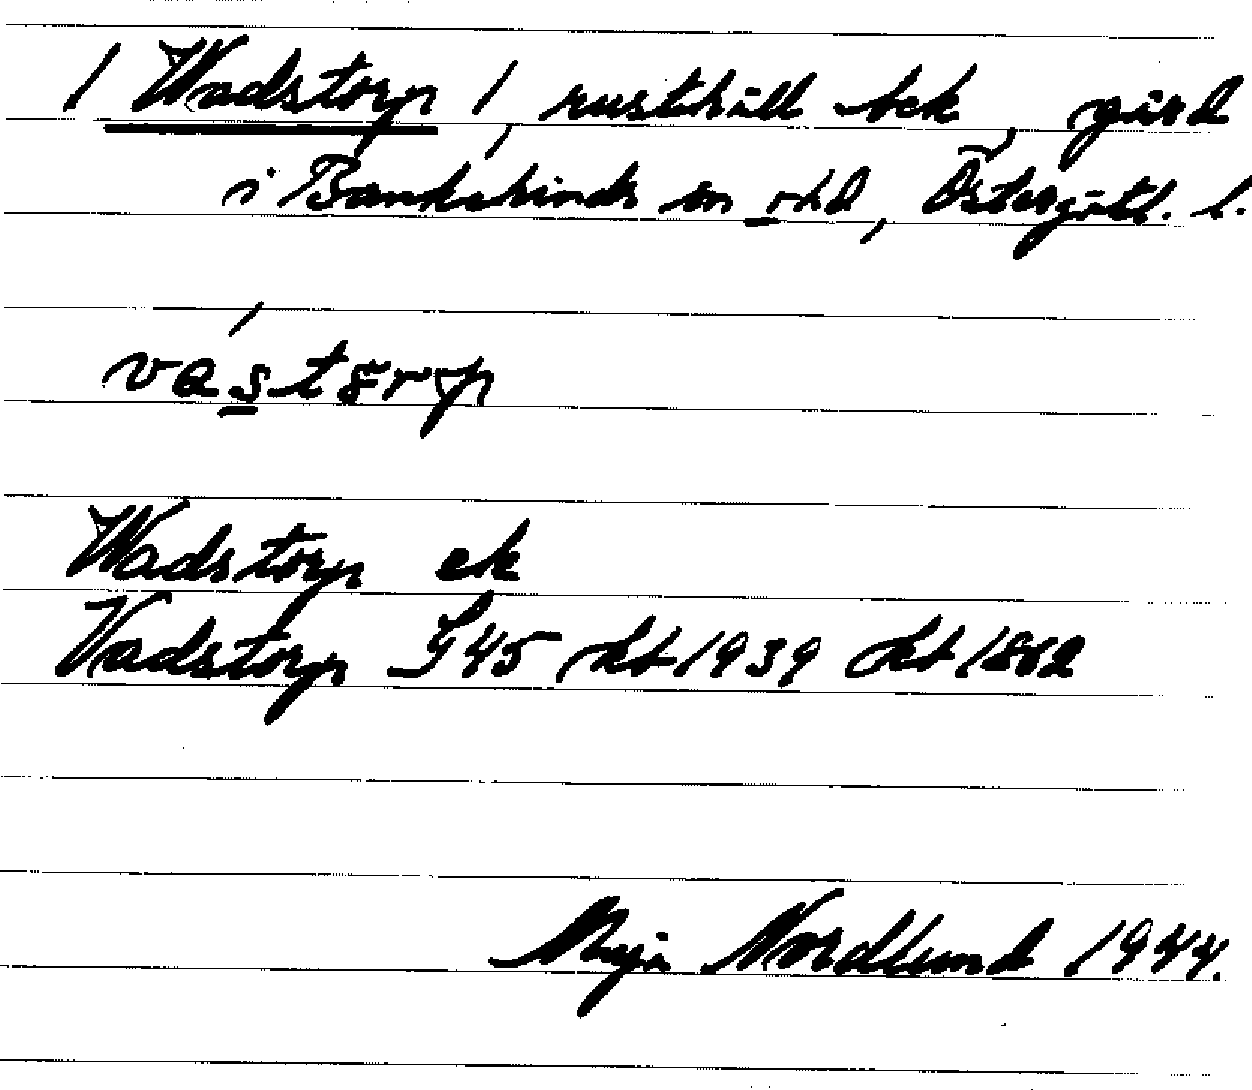 / Wadstorp /, rusthåll och, gård
i Bankekinds sn o. hd, Östergötl. l.
vástərp
Wadstorp ek
Vadstorp G 45 1939 1862
Maja Nordlund 1944.